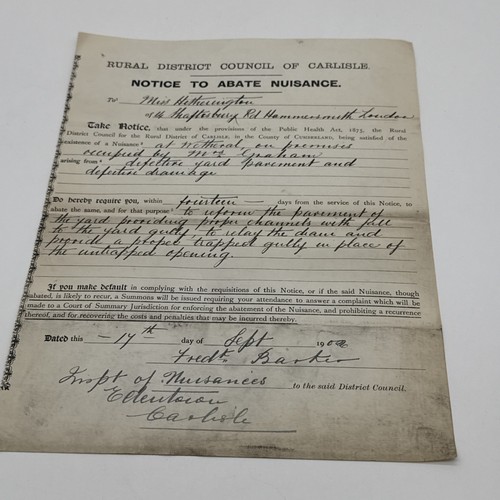 RURAL DISTRICT COUNCIL OF CARLISLE.
NOTICE TO ABATE NUISANCE.
To Miss Hetherington
of 16 Shaftesbury Rd Hammersmith London
Take Notice, that under the provisions of the Public Health Act, 1875, the Rural
District Council for the Rural District of CARLISLE, in the County of CUMBERLAND, being satisfied of the
existence of a Nuisance at Wetheral, on premises
occupied by Mrs Graham
arising from defective yard pavement and
defective drainage
Do hereby require you, within fourteen days from the service of this Notice, to
abate the same, and for that purpose to reform the pavement of
the yard providing proper channels with fall
to the yard gully, to relay the drain and
provide a proper trapped gully in place of
the untrapped opening.
If you make default in complying with the requisitions of this Notice, or if the said Nuisance, though
abated, is likely to recur, a Summons will be issued requiring your attendance to answer a complaint which will be
made to a Court of Summary Jurisdiction for enforcing the abatement of the Nuisance, and prohibiting a recurrence
thereof, and for recovering the costs and penalties that may be incurred thereby.
Dated this 17th day of Sept 1902
Fredk Barker
Inspt of Nuisances to the said District Council.
Edentown
Carlisle